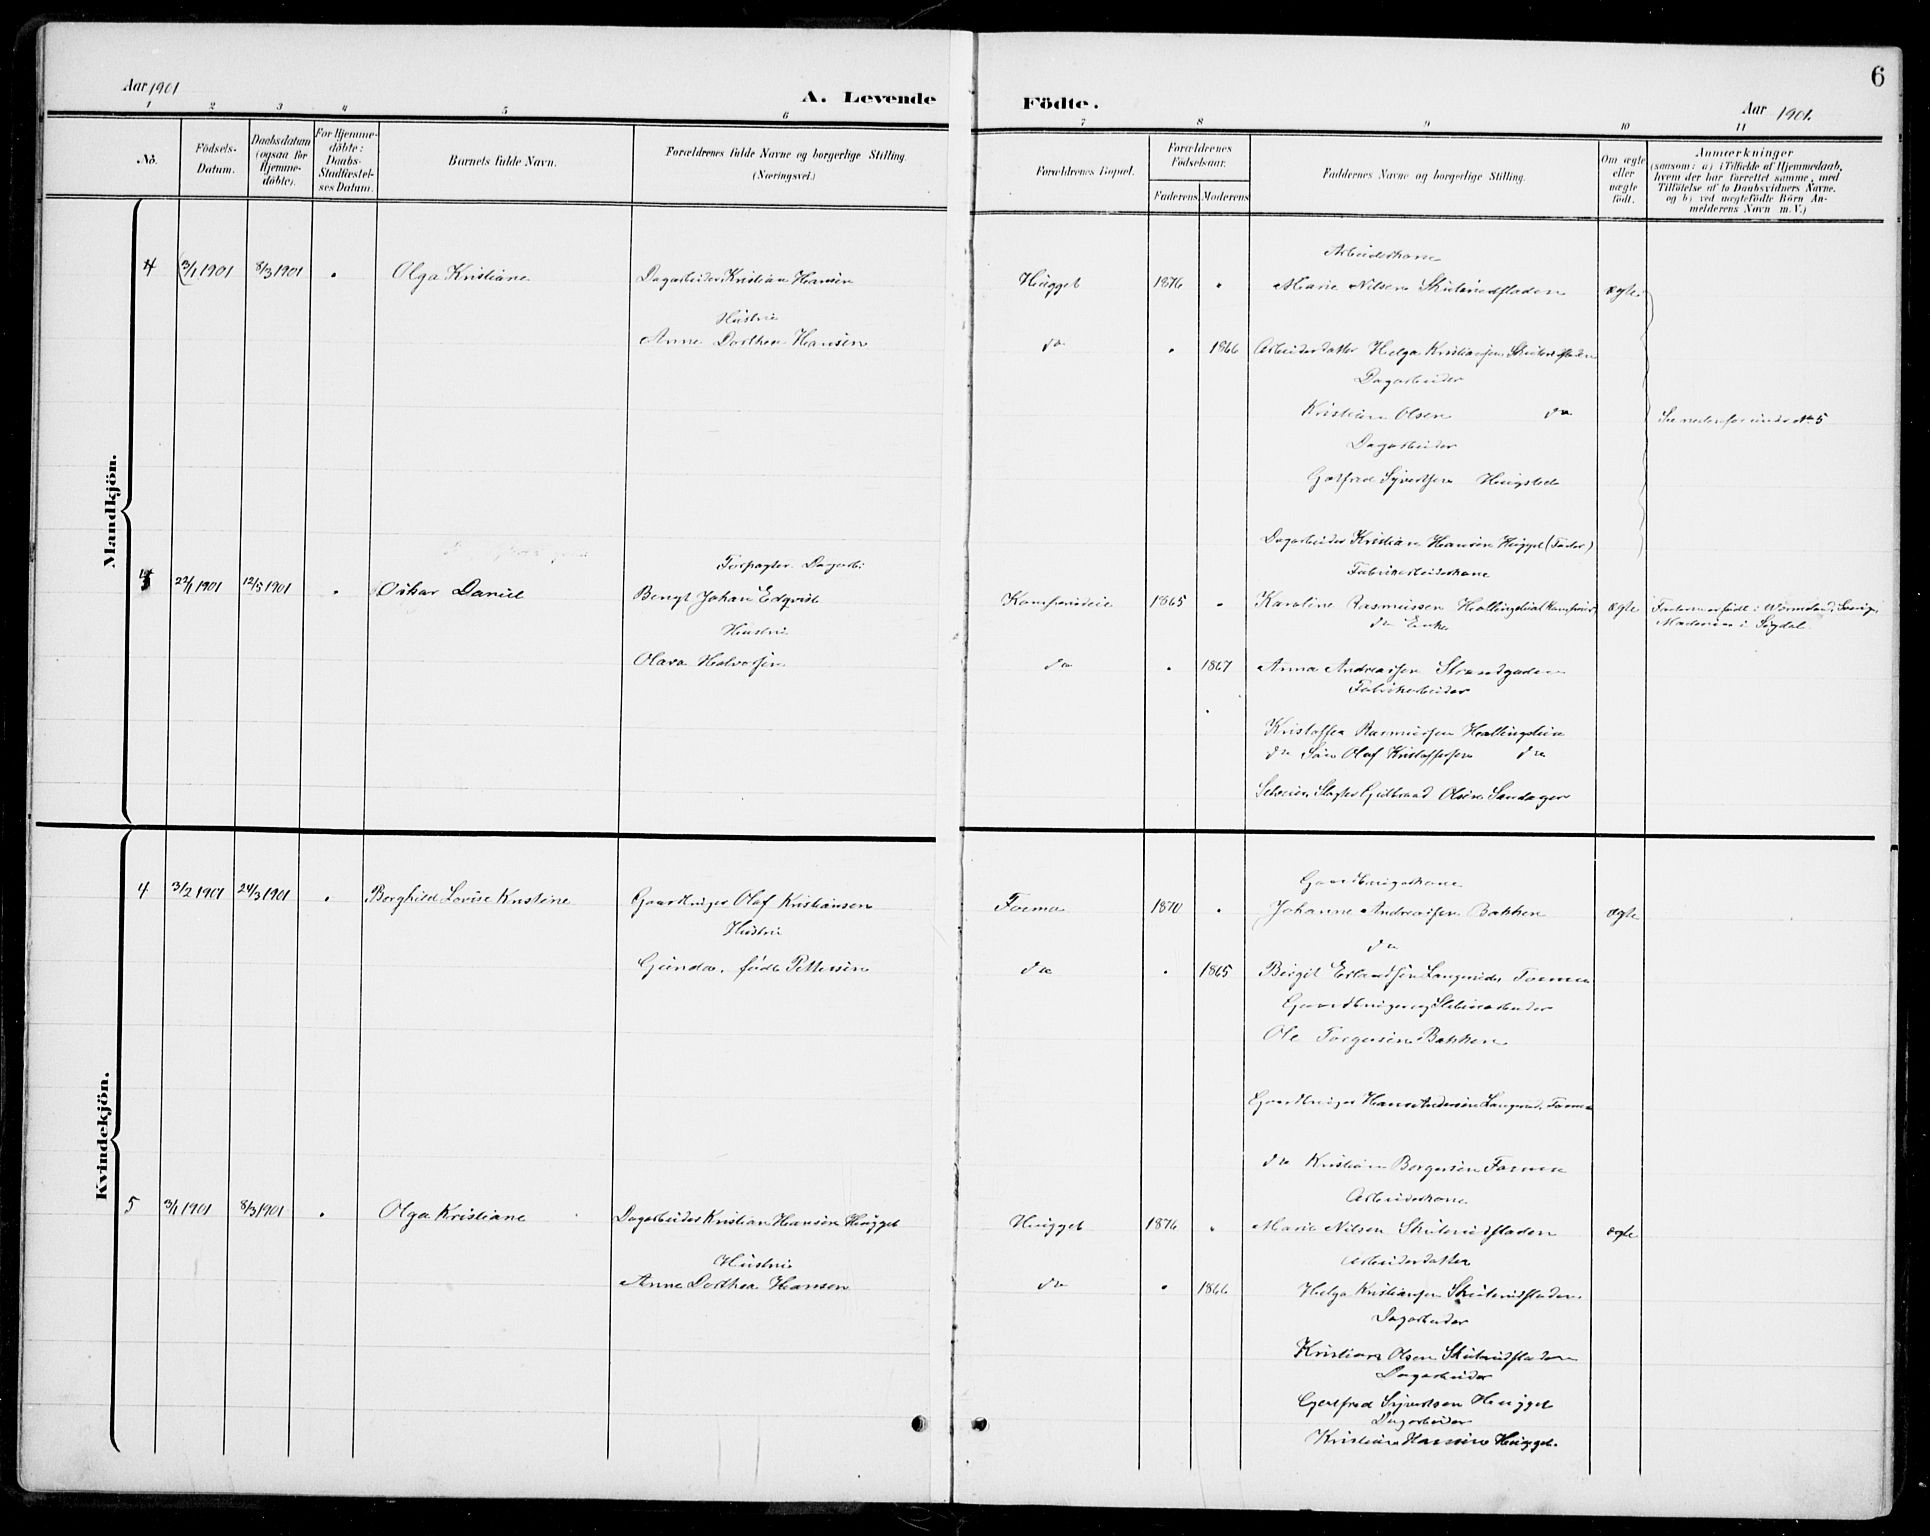 Aar 1901
A. Levende Födte.
Aar 1901.
6
1 2 3 4 5 6 7 8 9 10 11
No.
Födsels-Datum.
Daabsdatum (ogsaa for Hjemme-döbte).
For Hjemme-döbte: Daabs-Stadfæstel-ses Datum.
Barnets fulde Navn.
Forældrenes fulde Navne og borgerlige Stilling. (Næringsvei.)
Forældrenes Bopæl.
Forældrenes Födselsaar.
Faderens Moderens
Faddernes Navne og borgerlige Stilling.
Om ægte eller uægte födt.
Anmærkninger
(saasom: a) i Tilfælde af Hjemmedaab,
hvem der har forrettet samme, med
Tilföielse af to Daabsvidners Navne,
og b) ved uægtefödte Börn An-
melderens Navn m. V.)
Mandkjön.
Arbeiderkone
4 3/1 1901 8/3 1901 Olga Kristiane Dagarbeider Kristian Hansen Hugget 1876 Marie Nilsen Skuterudfladen ægte
Hustru
Anne Dorthea Hansen do 1866 Arbeiderdatter Helga Kristiansen Skuterudfladen
Dagarbeider
Kristian Olsen do Se nedenfor under No 5
Dagarbeider
Gotfred Syvertsen
Dagarbeider Kristian Hansen Hugget (Fader)
Forpagter Dagarb: Fabrikarbeiderkone
4 22/1 1901 12/5 1901 Oskar Daniel Bengt Johan Edqvist 1865 Karoline Rasmussen ægte Faderen født i Wermland, Sverige,
Hustru do Enke Moderen i Sigdal
Olava Halvorsen do 1867 Anna Andreassen Strandgaden
Fabrikarbeider
Kristoffer Rasmussen
do Søn Olaf Kristoffersen do
Slagter Gulbrand Olsen Sandager
Kvindekjön.
Gaardbrugerkone
4 3/2 1901 24/3 1901 Borghild Lovise Kristine Gaardbruger Olaf Kristiansen Foema 1870 Johanne Andreassen Bakken ægte
Hustru do
Gunda, født Pettersen do 1865 Birgit Erlandsen
Gaardbruger og
Ole Torgersen Bakken
Gaardbruger Hans Andersen
do Kristian Borgersen
Arbeiderkone
5 3/1 1901 8/3 1901 Olga Kristiane Dagarbeider Kristian Hansen Hugget Hugget 1876 Marie Nilsen Skuterudfladen ægte
Hustru Arbeiderdatter
Anne Dorthea Hansen do 1866 Helga Kristiansen Skuterudfladen
Dagarbeider
Kristian Olsen Skuterudfladen
Dagarbeider
Gotfred Syvertsen Hugget
Dagarbeider
Kristian Hansen Hugget.